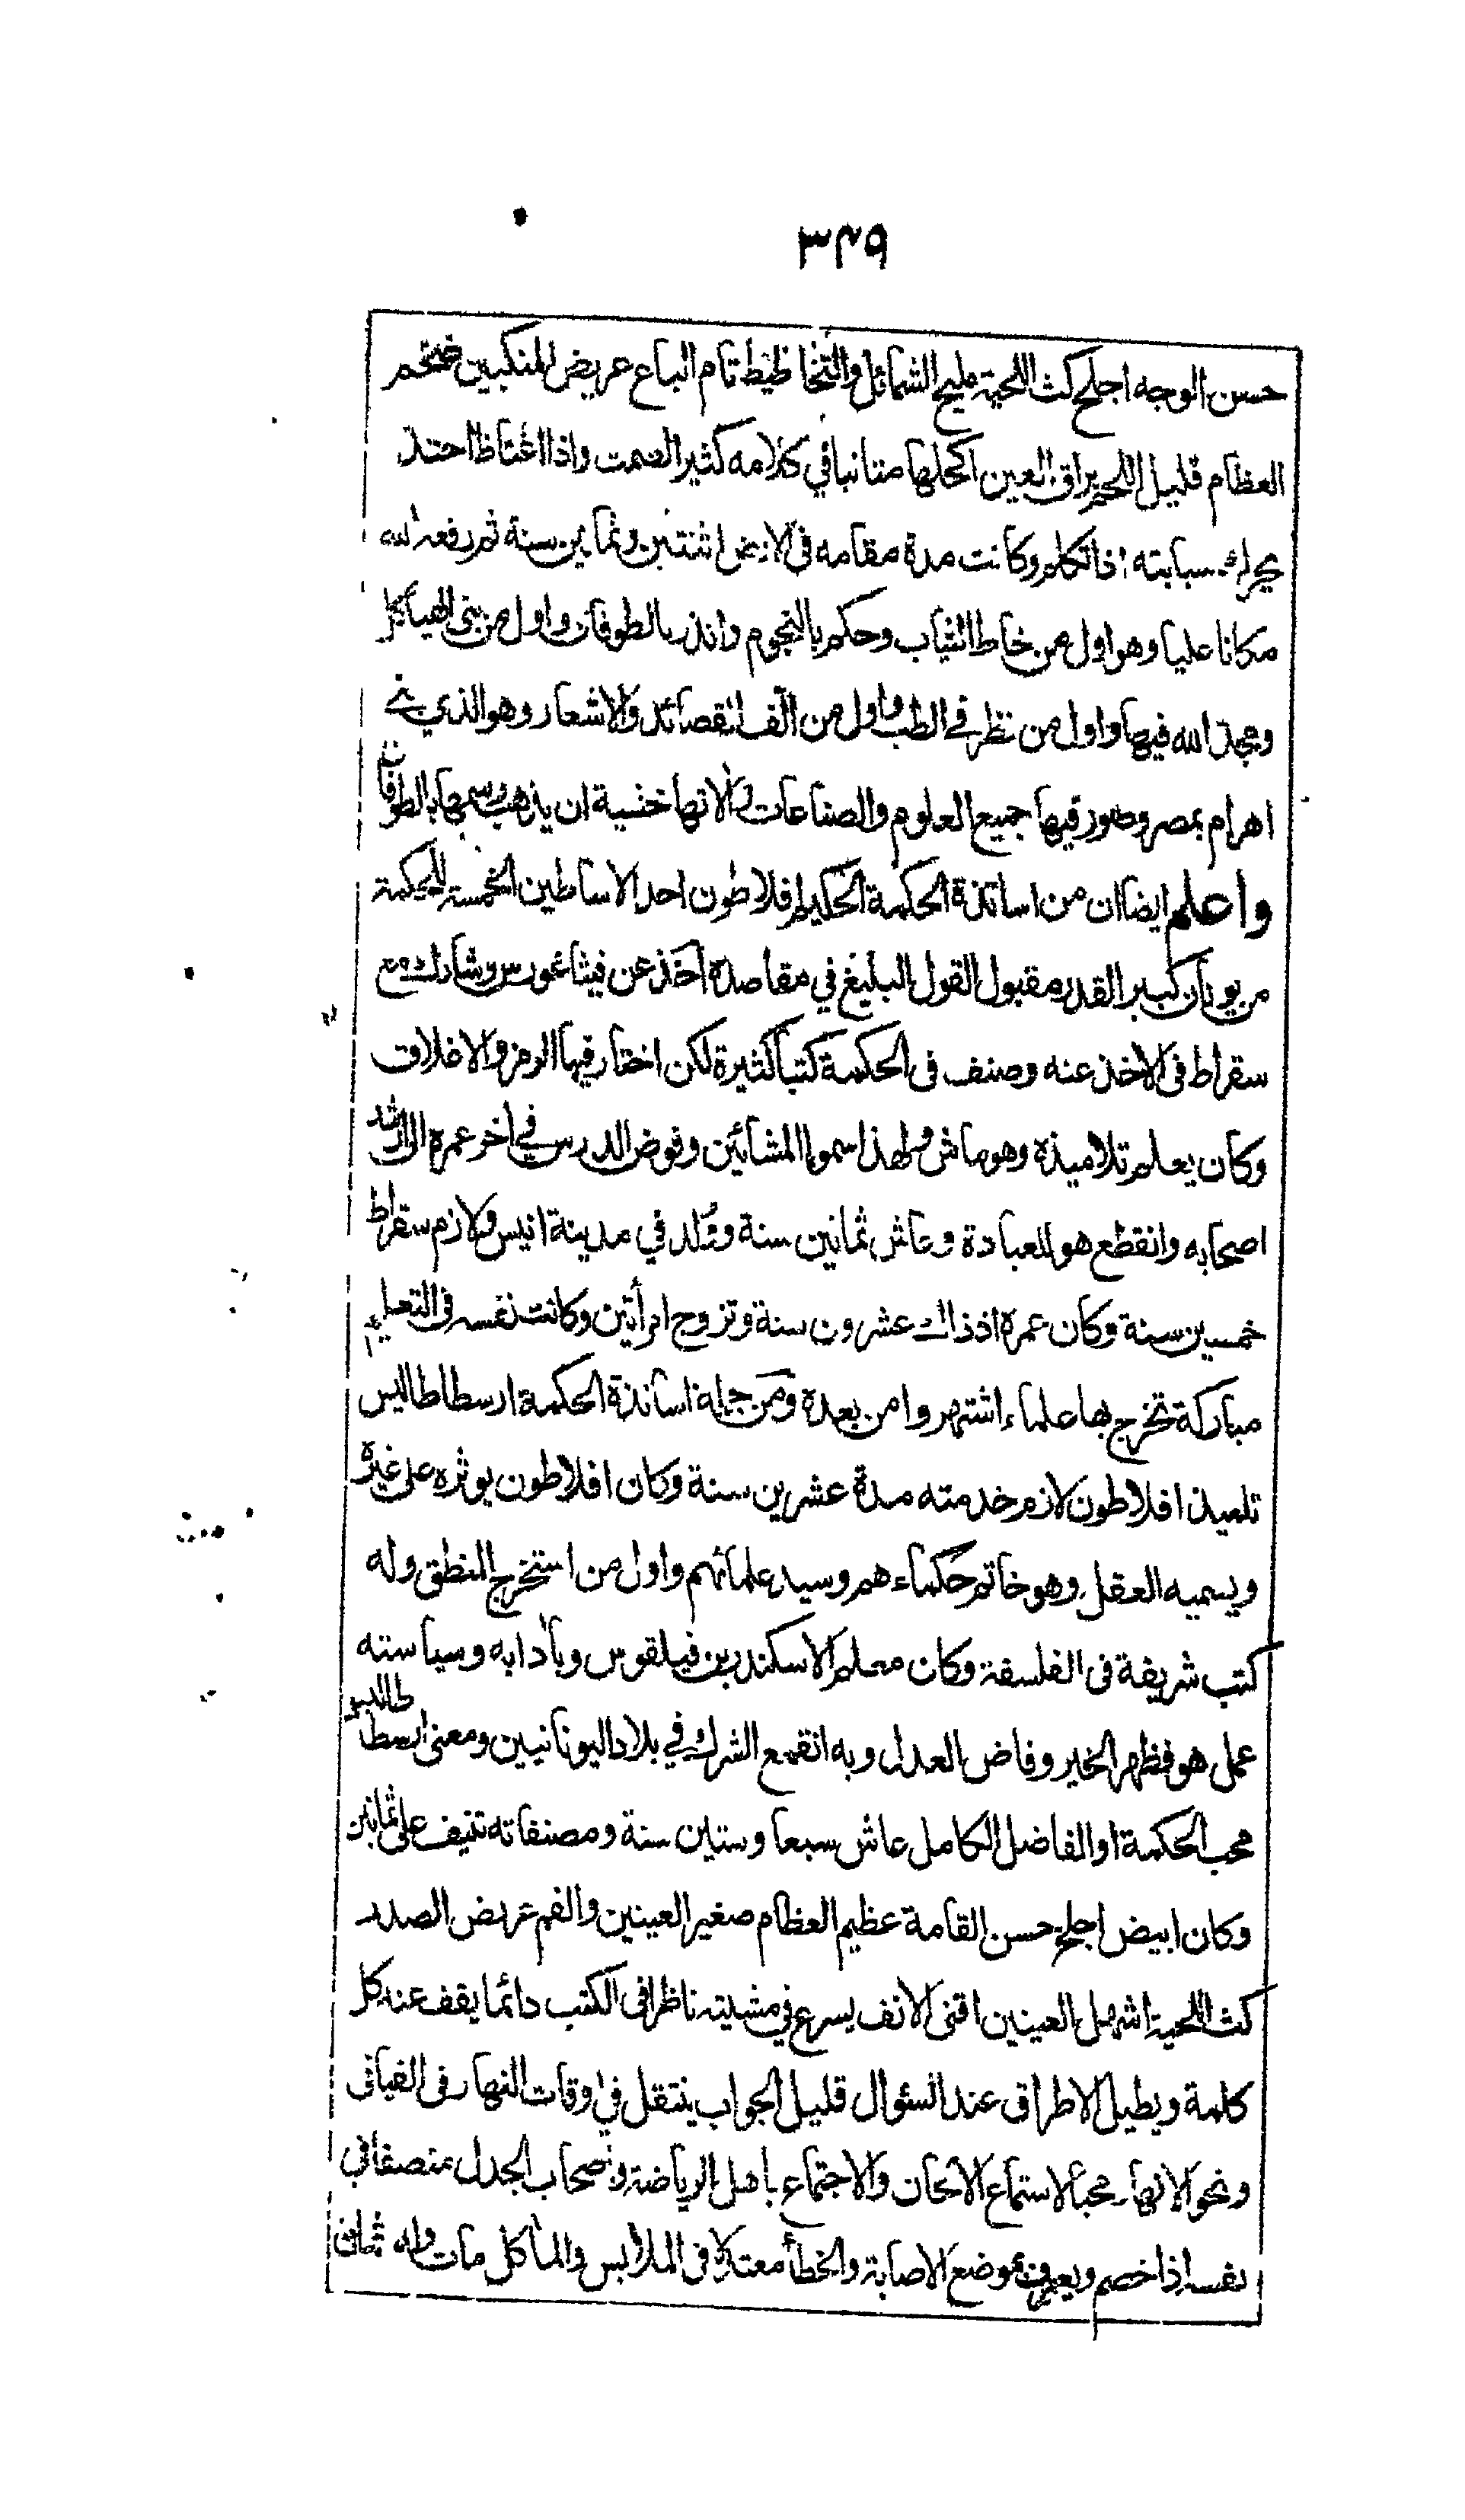 ٣٢٩
حسن الوجه اجلح كث اللحية مليح الشمائل والتخاطيط تام الباع عريض المنكبين ضخم
العظام قليل اللحم براق العين اكحلها متانيا في كلامه كثير الصمت واذا اغتاظ احتد
يحرك سبابته اذا تكلم وكانت مدة مقامه في الارض اثنتين وثمانين سنة ثم رفعه الله
مكانا عليا وهو اول من خاط الثياب وحكم بالنجوم وانذر بالطوفان واول من بنى الهياكل
ومجد الله فيها واول من نظر في الطب واول من الف القصائد والاشعار وهو الذي بنى
اهرام بمصر وصور فيها جميع العلوم والصناعات والاتها خشية ان يذهب رسمها بالطوفان
واعلم ايضا ان من اساتذة الحكمة الحكيم افلاطون احد الاساطين الخمسة للحكمة
من يونان كبير القدر مقبول القول البليغ في مقاصده اخذ عن فيثاغورس وشارك مع
سقراط في الاخذ عنه وصنف في الحكمة كتبا كثيرة لكن اختار فيها الرمز والاغلاق
وكان يعلم تلاميذه وهو ماش ولهذا سموا المشائين وفوض الدرس في اخر عمره الى ارشد
اصحابه وانقطع هو للعبادة وعاش ثمانين سنة وولد في مدينة اثيس ولازم سقراط
خمسين سنة وكان عمره اذ ذاك عشرون سنة وتزوج امرأتين وكانت نفسه في التعليم
مباركة تخرج بها علماء اشتهروا من بعده ومن جملة اساتذة الحكمة ارسطاطاليس
تلميذ افلاطون لازم خدمته مدة عشرين سنة وكان افلاطون يوثره على غيره
ويسميه العقل وهو خاتم حكماءهم وسيد علمائهم واول من استخرج المنطق وله
كتب شريفة في الفلسفة وكان معلم الاسكندر بن فيلقوس وبآدابه وسياسته
عمل هو فظهر الخير وفاض العدل وبه انقمع الشرك في بلاد اليونانيين ومعنى ارسطاطاليس
محب الحكمة او الفاضل الكامل عاش سبعا وستين سنة ومصنفاته تنيف على ثمانين
وكان ابيض اجلح حسن القامة عظيم العظام صغير العينين والفم عريض الصدر
كث اللحية اشهل العينين اقنى الانف يسرع في مشيته ناظرا في الكتب دائما يقف عند كل
كلمة ويطيل الاطراق عند السئوال قليل الجواب ينتقل في اوقات النهار في الفيافي
ونحو الانهار محبا لاستماع الالحان والاجتماع باهل الرياضة واصحاب الجدل منصفا في
نفسه اذا خصم ويعرف موضع الاصابة والخطأ معتدلا في الملابس والمأكل مات وله ثمان